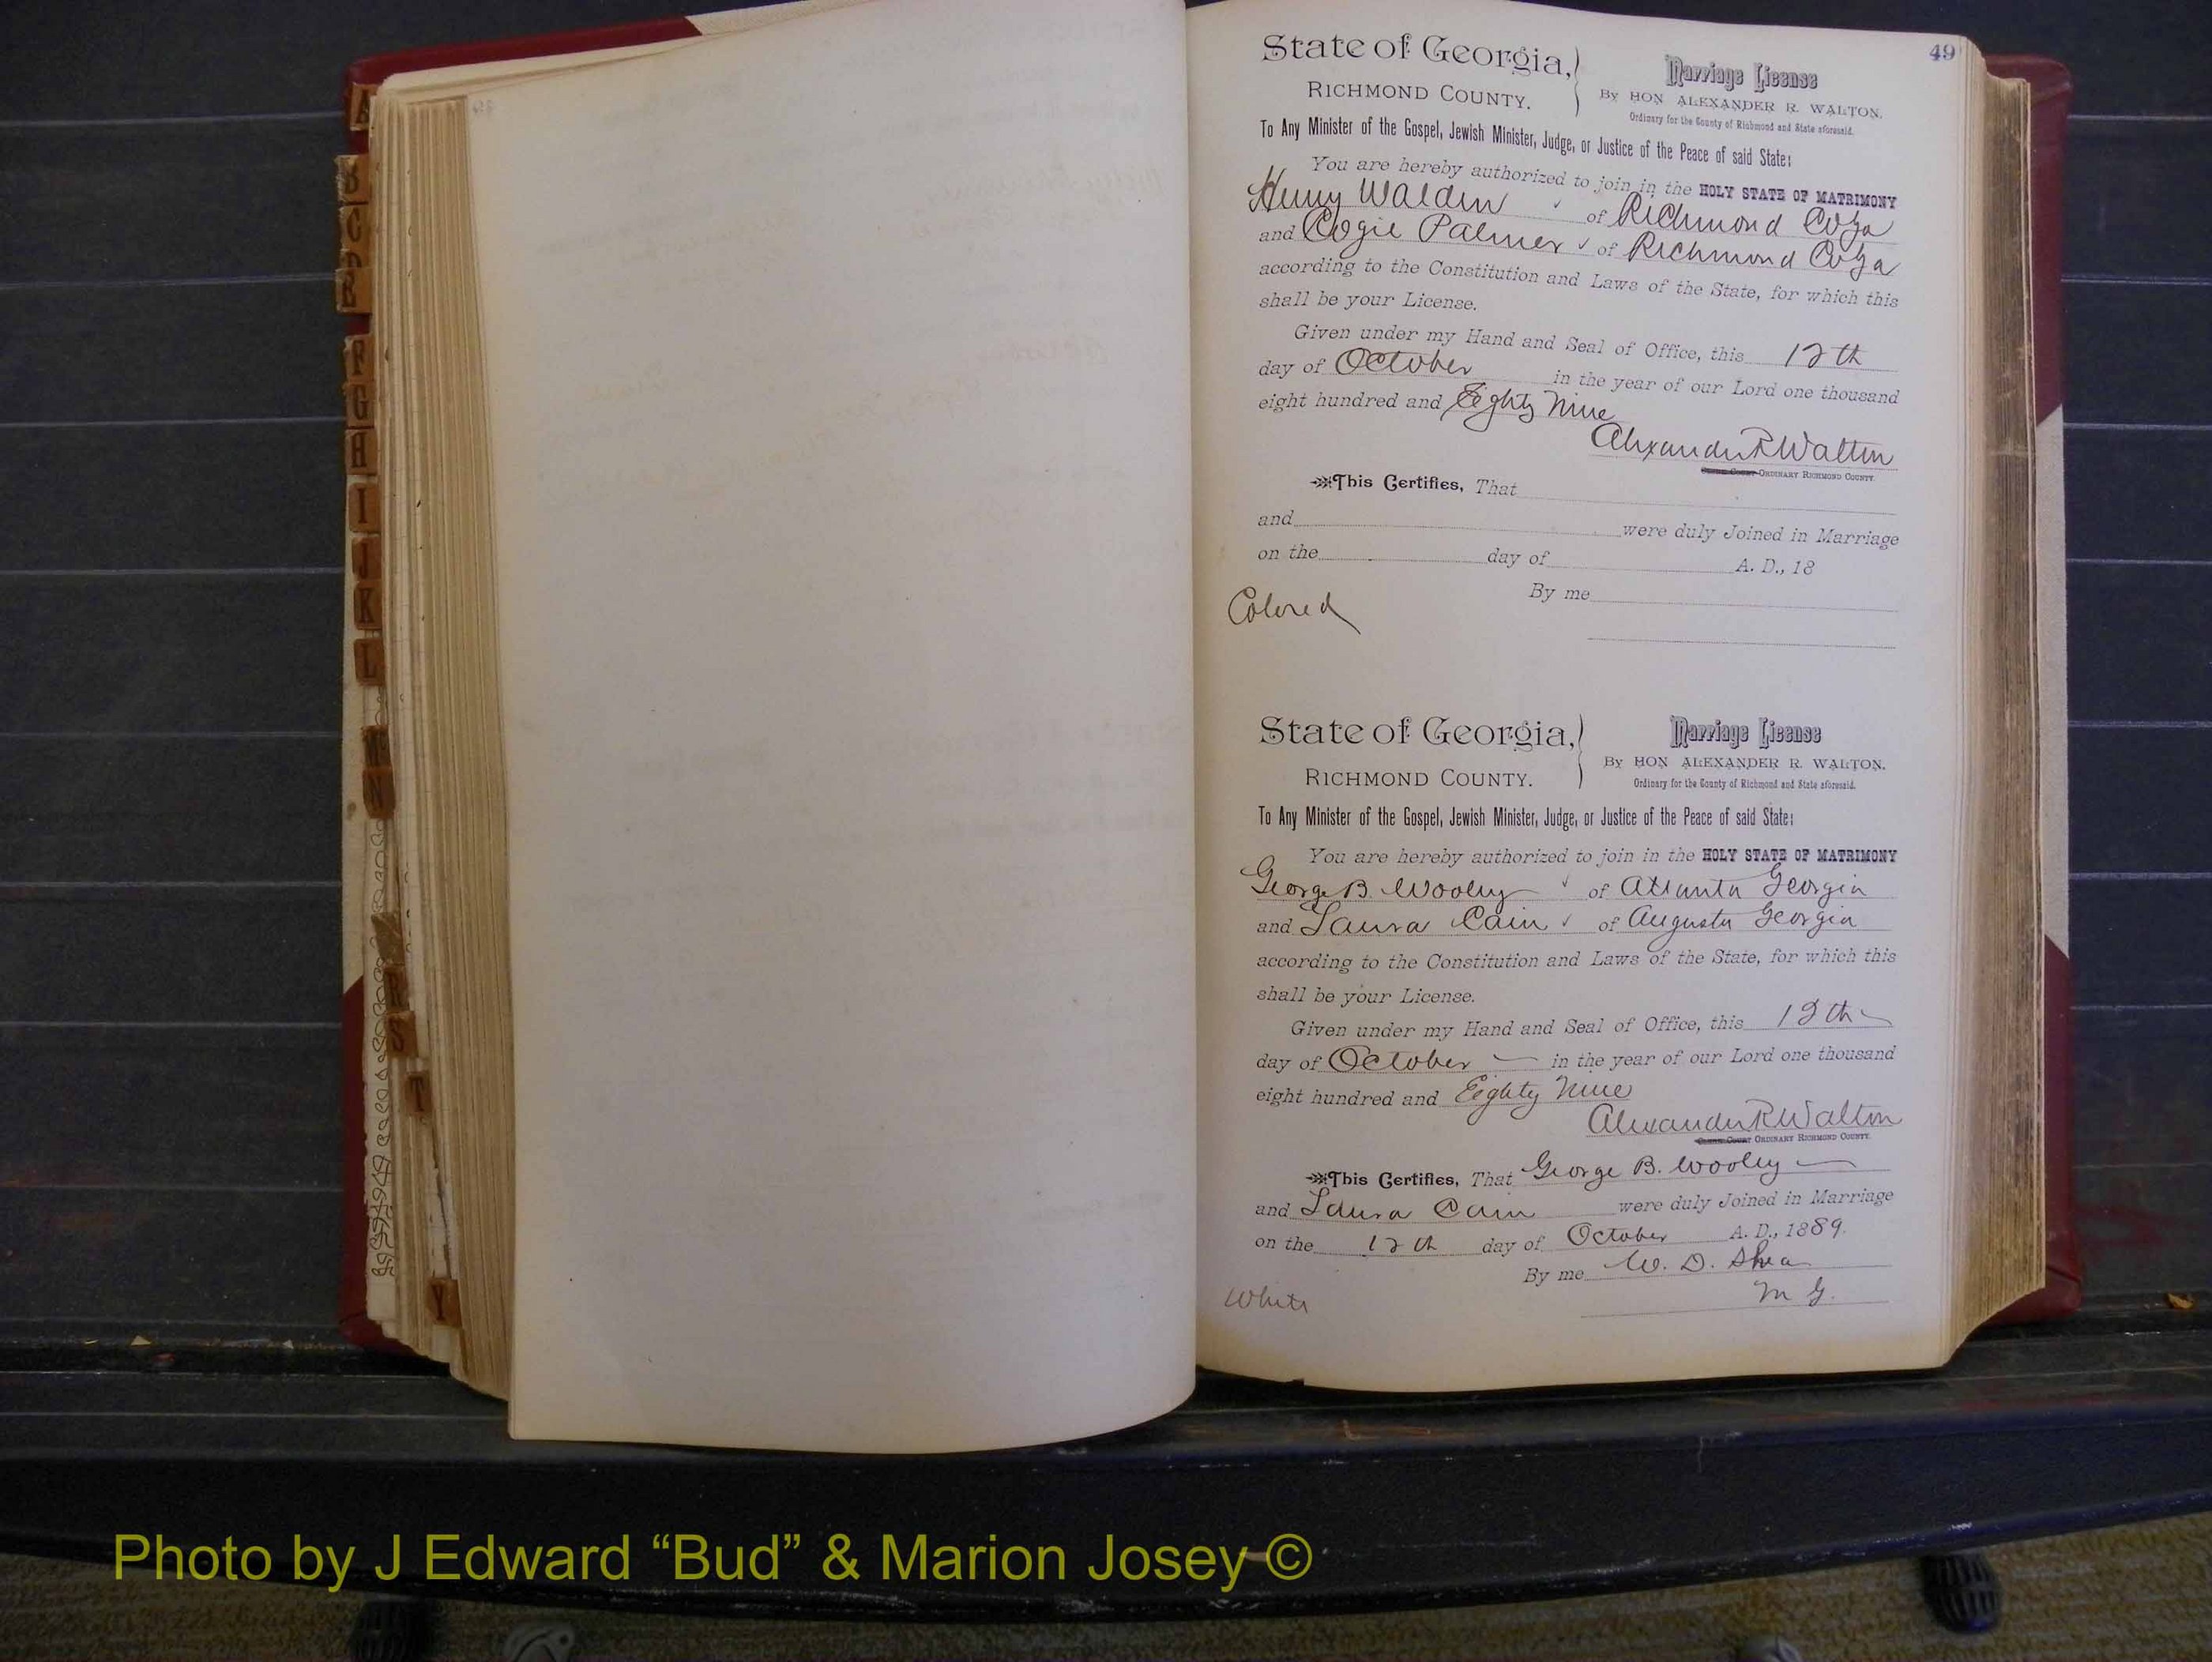 49
State of Georgia,
RICHMOND COUNTY.
Marriage License
By HON ALEXANDER R. WALTON,
Ordinary for the County of Richmond and State aforesaid.
To Any Minister of the Gospel, Jewish Minister, Judge, or Justice of the Peace of said State:
You are hereby authorized to join in the HOLY STATE OF MATRIMONY
Henry Walden of Richmond Co Ga
and Palmer of Richmond Co Ga
according to the Constitution and Laws of the State, for which this
shall be your License.
Given under my Hand and Seal of Office, this 12th
day of October in the year of our Lord one thousand
eight hundred and Eighty Nine
Alexander R Walton
ORDINARY RICHMOND COUNTY.
This Certifies, That
and were duly Joined in Marriage
on the day of A. D., 18
By me
Colored
State of Georgia,
RICHMOND COUNTY.
Marriage License
By HON ALEXANDER R. WALTON.
Ordinary for the County of Richmond and State aforesaid.
To Any Minister of the Gospel, Jewish Minister, Judge, or Justice of the Peace of said State:
You are hereby authorized to join in the HOLY STATE OF MATRIMONY
George B. Wooley of Atlanta Georgia
and Laura Cain of Augusta Georgia
according to the Constitution and Laws of the State, for which this
shall be your License.
Given under my Hand and Seal of Office, this 12th
day of October in the year of our Lord one thousand
eight hundred and Eighty Nine
Alexander R Walton
ORDINARY RICHMOND COUNTY.
This Certifies, That George B. Wooley
and Laura Cain were duly Joined in Marriage
on the 12th day of October A. D., 1889.
By me W. D. Shea
M G.
White
A
B
C
D
F
G
H
I
J
K
L
Mc
N
R
S
T
Y
Photo by J Edward “Bud” & Marion Josey ©